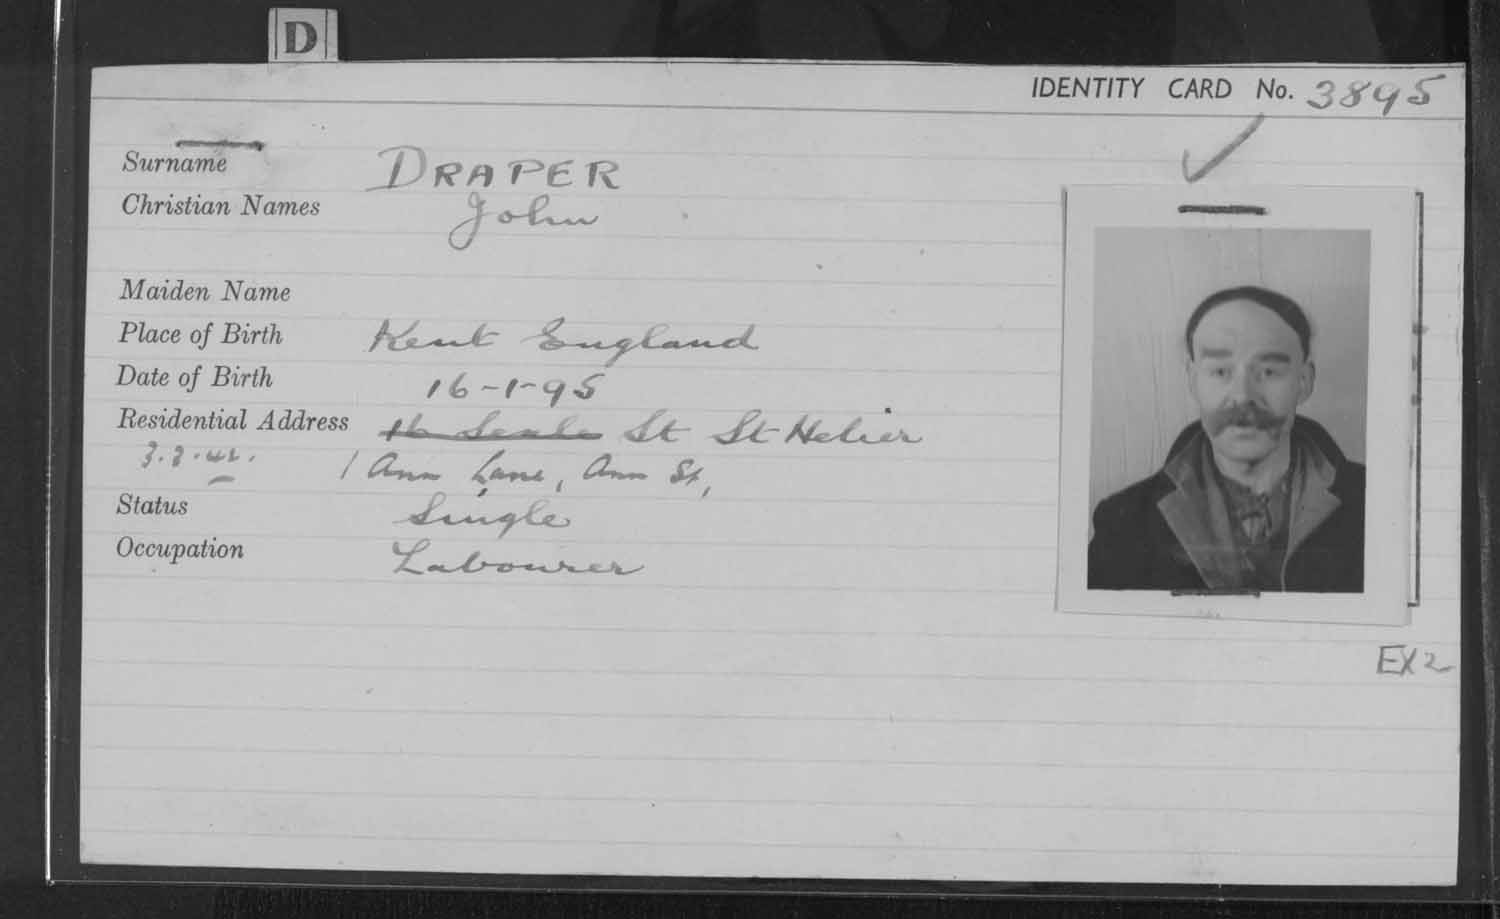 D
IDENTITY CARD No. 3895
Surname DRAPER
Christian Names John
Maiden Name
Place of Birth Kent England
Date of Birth 16-1-95
Residential Address 16 Seale St St Helier
3.3.42. 1 Ann Lane, Ann St,
Status Single
Occupation Labourer
EX2